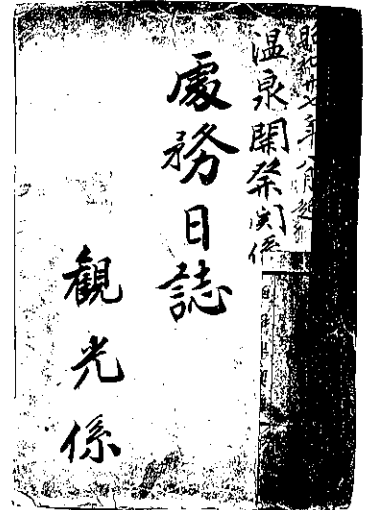 昭和廿七年八月起
温泉開発関係
處務日誌
観光係